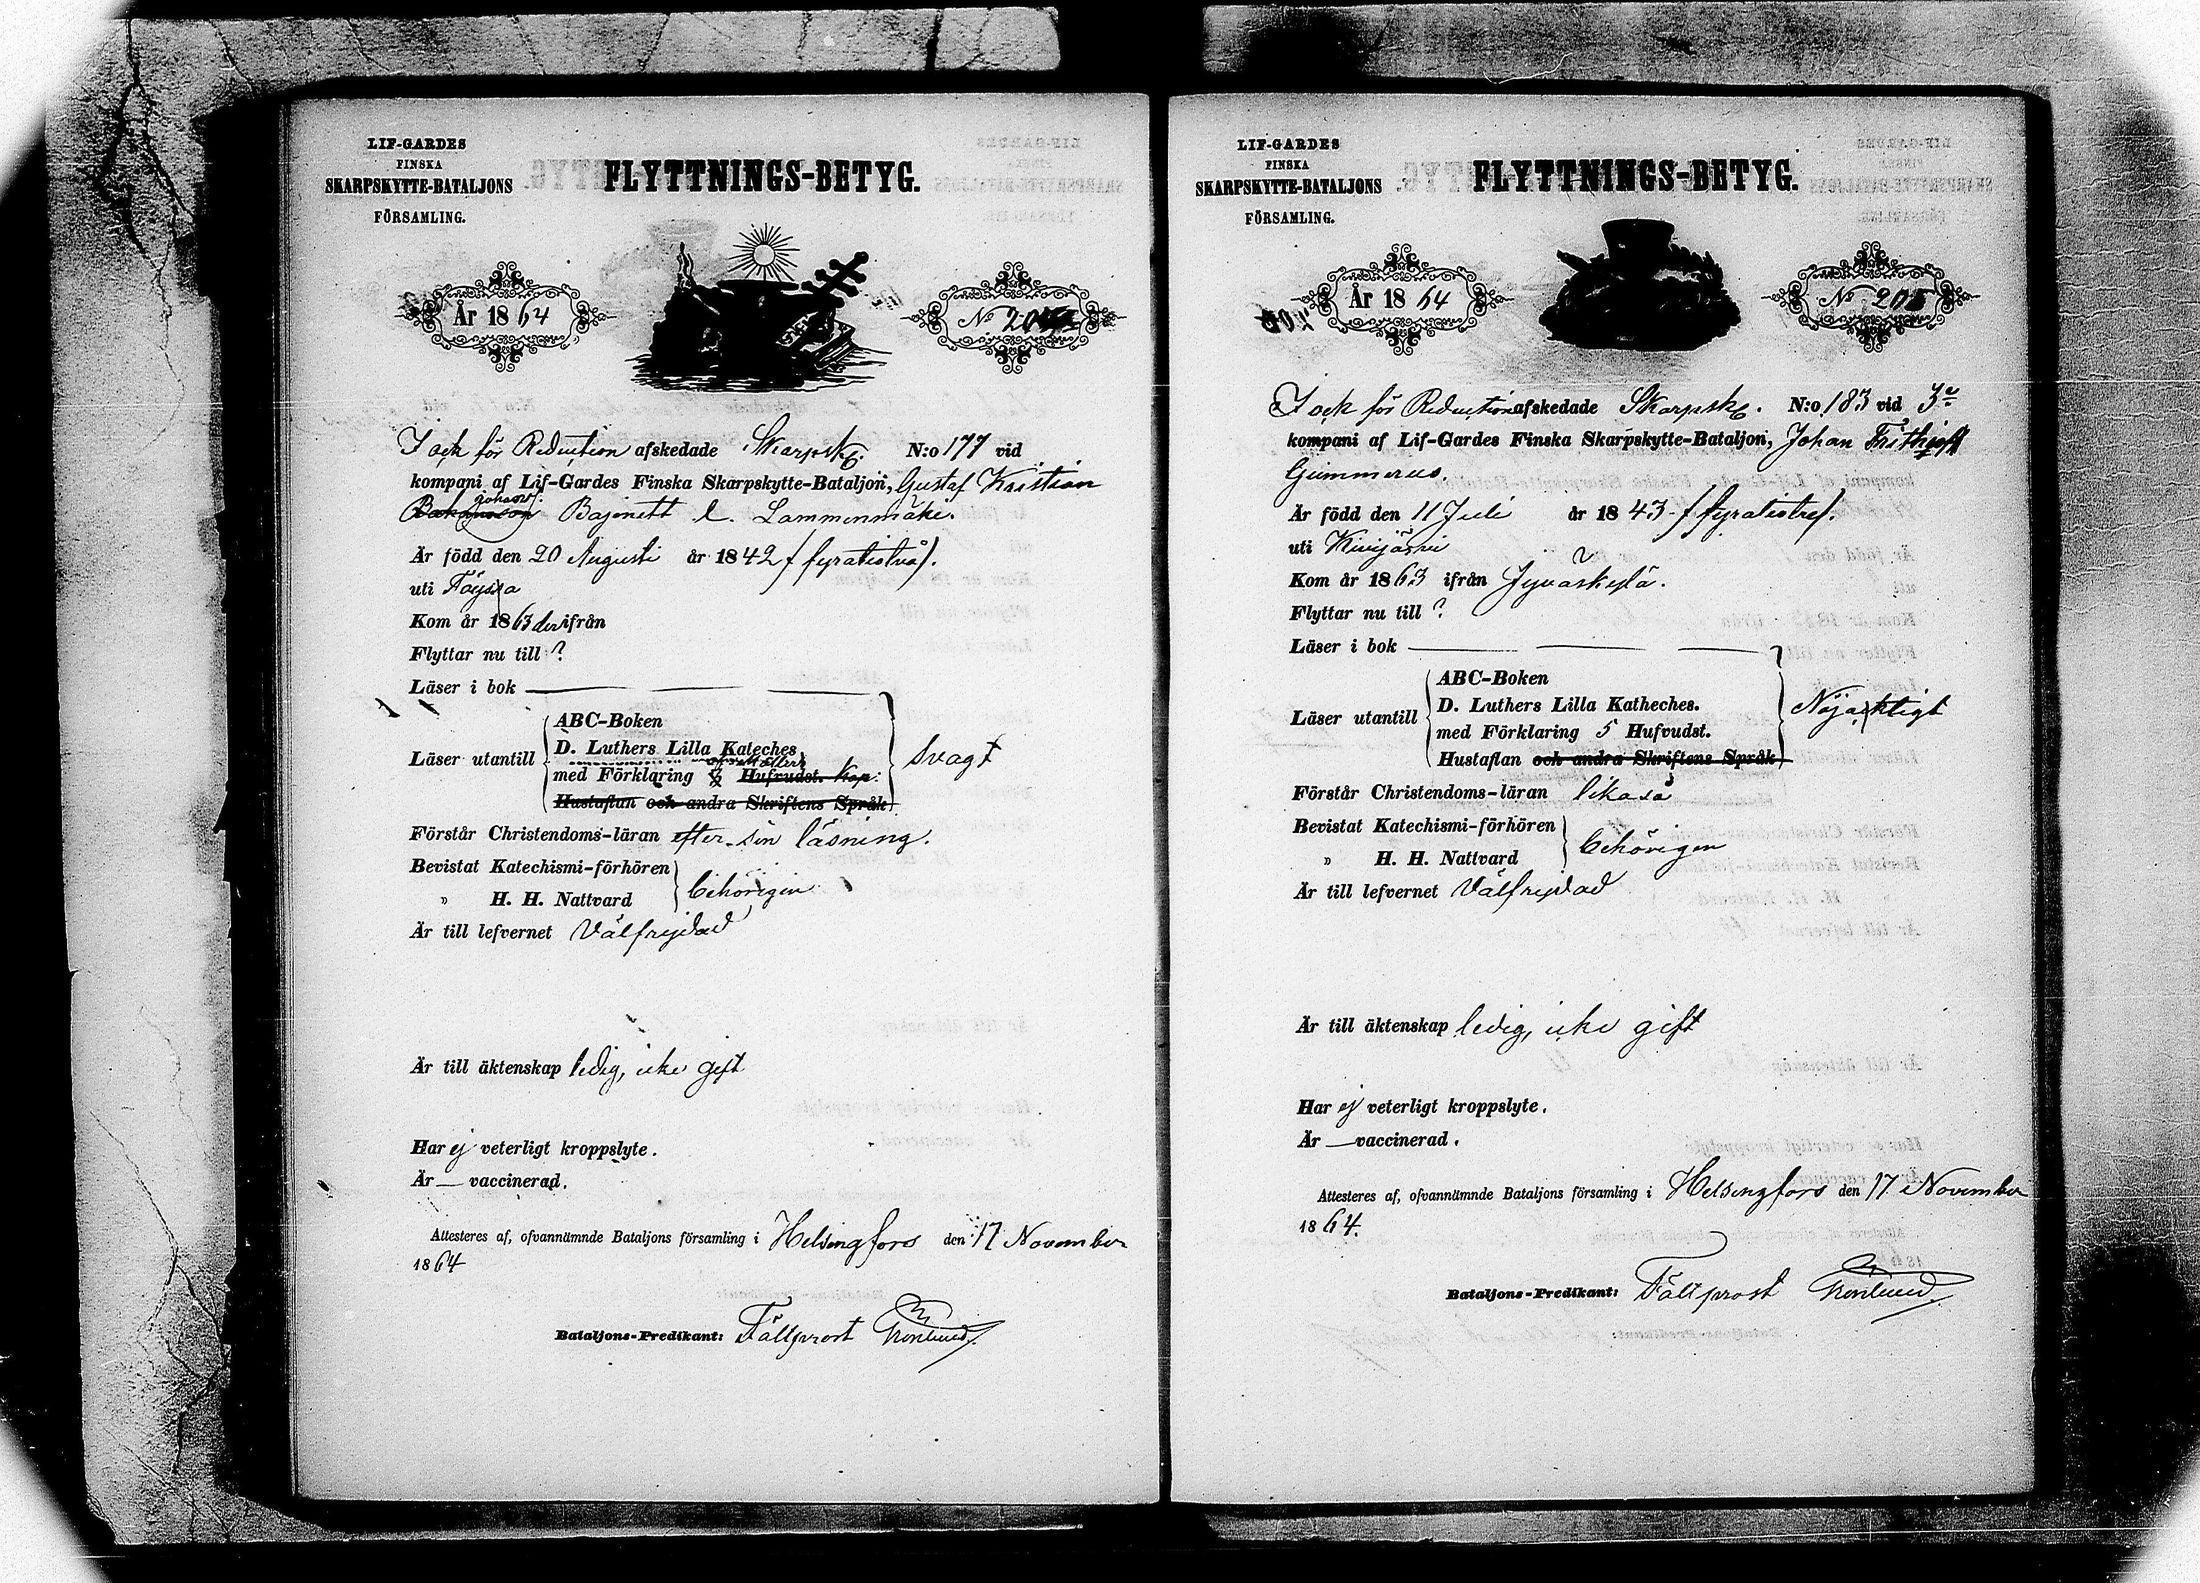 LIF-GARDES
FINSKA
SKARPSKYTTE-BATALJONS
FÖRSAMLING.
FLYTTNINGS-BETYG.
År 1864
No
I och för Reduction afskedade Skarpsk. N:o 177 vid
kompani af Lif-Gardes Finska Skarpskytte-Bataljon, Gustaf Kristian
Johanss. Bajonett l. Lammenmäki.
Är född den 20 Augusti år 1842 (fyratiotvå).
uti Töysä
Kom år 1863 der ifrån
Flyttar nu till ?
Läser i bok
Läser utantill
ABC-Boken
D. Luthers Lilla Kateches
med Förklaring Hufvudst. Kap:
Hustaflan och andra Skriftens Språk
Svagt
Förstår Christendoms-läran efter sin läsning.
Bevistat Katechismi-förhören
" H. H. Nattvard
behörigen
Är till lefvernet Välfrejdad
Är till äktenskap ledig, icke gift
Har ej veterligt kroppslyte.
Är — vaccinerad.
Attesteres af, ofvannämnde Bataljons församling i Helsingfors den 17 November
1864
Bataljons-Predikant: Fältprost Grönlund.
LIF-GARDES
FINSKA
SKARPSKYTTE-BATALJONS
FÖRSAMLING.
FLYTTNINGS-BETYG.
År 1864
No 205
I och för Reduction afskedade Skarpsk. N:o 183 vid 3e
kompani af Lif-Gardes Finska Skarpskytte-Bataljon, Johan Frithioff
Gummerus.
Är född den 11 Juli år 1843 (fyratiotre).
uti Kivijärvi
Kom år 1863 ifrån Jyväskylä.
Flyttar nu till ?
Läser i bok
Läser utantill
ABC-Boken
D. Luthers Lilla Katheches.
med Förklaring 5 Hufvudst.
Hustaflan och andra Skriftens Språk
Nöjaktigt
Förstår Christendoms-läran likaså
Bevistat Katechismi-förhören
" H. H. Nattvard
behörigen
Är till lefvernet Välfrejdad
Är till äktenskap ledig, icke gift
Har ej veterligt kroppslyte.
Är — vaccinerad.
Attesteres af, ofvannämnde Bataljons församling i Helsingfors den 17 November
1864.
Bataljons-Predikant: Fältprost Grönlund.